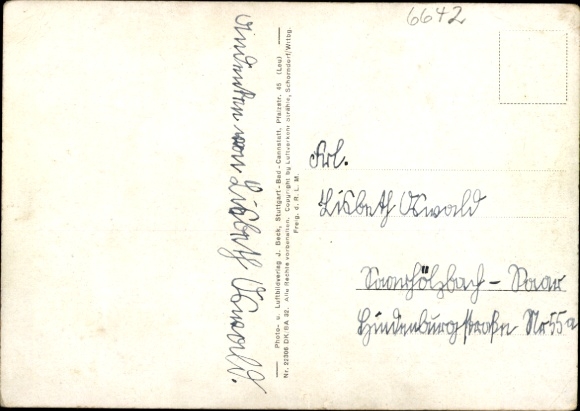 6642
Andenken von Lisbeth Oswald.
Photo- u. Luftbildverlag J. Beck, Stuttgart-Bad-Cannstatt, Pfalzstr. 45 (Lau)
Nr. 22308 DK/BA 32. Alle Rechte vorbehalten. Copyright by Luftverkehr Strähle, Schorndorf/Wttbg.
Freig. d. R. L. M.
Frl.
Lisbeth Oswald
Saarhölzbach - Saar
Hindenburgstraße Nr 55a